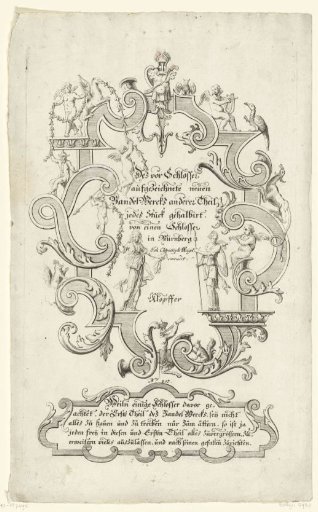 Des vor Schlosser
aufgezeichnete neuen
Bandel-Wercks anderer Theil,
jedes Stück gehalbirt
von einen Schlosser
in Nürnberg
Joh. Christoph Weigel
excudit
Klopffer
Weiln einige Schlosser davor ge-
achtet, der Erste Theil des Bandel Wercks sey nicht
alles zu hauen und zu treiben nur zum ätzen, so ist ja
jeden frey in diesen und Ersten Theil alles zu vergrössern, zu
erweitern vieles auszulassen, und nach seinen gefallen zurichten.